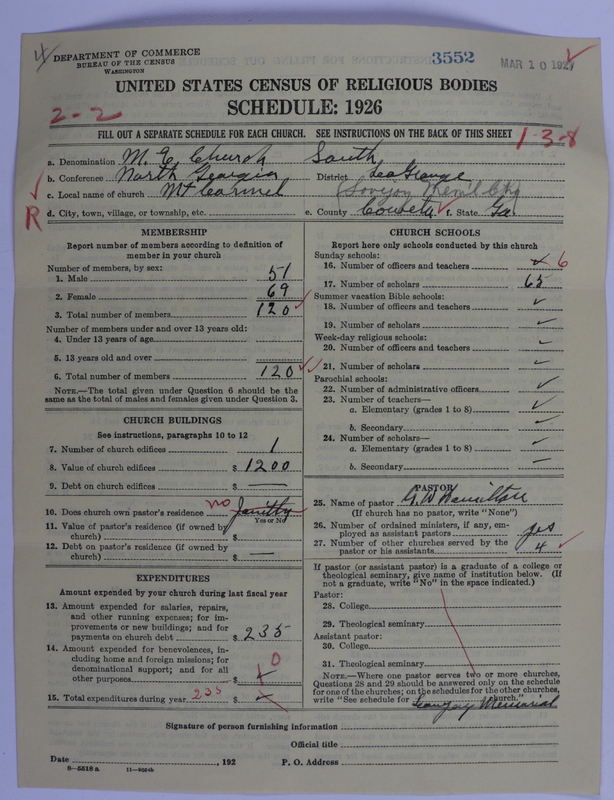 4
DEPARTMENT OF COMMERCE
BUREAU OF THE CENSUS
WASHINGTON
3552
MAR 10 1927
UNITED STATES CENSUS OF RELIGIOUS BODIES
SCHEDULE: 1926
2-2
FILL OUT A SEPARATE SCHEDULE FOR EACH CHURCH. SEE INSTRUCTIONS ON THE BACK OF THIS SHEET
1-3-8
a. Denomination M. E. Church South
b. Conference North Georgia District LaGrange
c. Local name of church Mt Carmel Lovejoy Mem'l Chg
R
d. City, town, village, or township, etc. e. County Coweta f. State Ga.
MEMBERSHIP
Report number of members according to definition of
member in your church
Number of members, by sex:
1. Male 51
2. Female 69
3. Total number of members 120
Number of members under and over 13 years old:
4. Under 13 years of age
5. 13 years old and over
6. Total number of members 120
NOTE.—The total given under Question 6 should be the
same as the total of males and females given under Question 3.
CHURCH BUILDINGS
See instructions, paragraphs 10 to 12
7. Number of church edifices 1
8. Value of church edifices $ 1200
9. Debt on church edifices $ —
10. Does church own pastor's residence no Jointly
Yes or No
11. Value of pastor's residence (if owned by
church) $
12. Debt on pastor's residence (if owned by
church) $ —
EXPENDITURES
Amount expended by your church during last fiscal year
13. Amount expended for salaries, repairs,
and other running expenses; for im-
provements or new buildings; and for
payments on church debt $ 235
14. Amount expended for benevolences, in-
cluding home and foreign missions; for
denominational support; and for all
other purposes $ 0
15. Total expenditures during year 235 $
CHURCH SCHOOLS
Report here only schools conducted by this church
Sunday schools:
16. Number of officers and teachers 6
17. Number of scholars 65
Summer vacation Bible schools:
18. Number of officers and teachers
19. Number of scholars
Week-day religious schools:
20. Number of officers and teachers
21. Number of scholars
Parochial schools:
22. Number of administrative officers
23. Number of teachers—
a. Elementary (grades 1 to 8)
b. Secondary
24. Number of scholars—
a. Elementary (grades 1 to 8)
b. Secondary
PASTOR
25. Name of pastor G. W. Hamilton
(If church has no pastor, write "None")
26. Number of ordained ministers, if any, em-
ployed as assistant pastors yes
27. Number of other churches served by the
pastor or his assistants 4
If pastor (or assistant pastor) is a graduate of a college or
theological seminary, give name of institution below. (If
not a graduate, write "No" in the space indicated.)
Pastor:
28. College
29. Theological seminary
Assistant pastor:
30. College
31. Theological seminary
NOTE.—Where one pastor serves two or more churches,
Questions 28 and 29 should be answered only on the schedule
for one of the churches; on the schedules for the other churches,
write "See schedule for Lovejoy Memorial church."
Signature of person furnishing information
Official title
Date , 192 P. O. Address
8—5518a 11—9564b